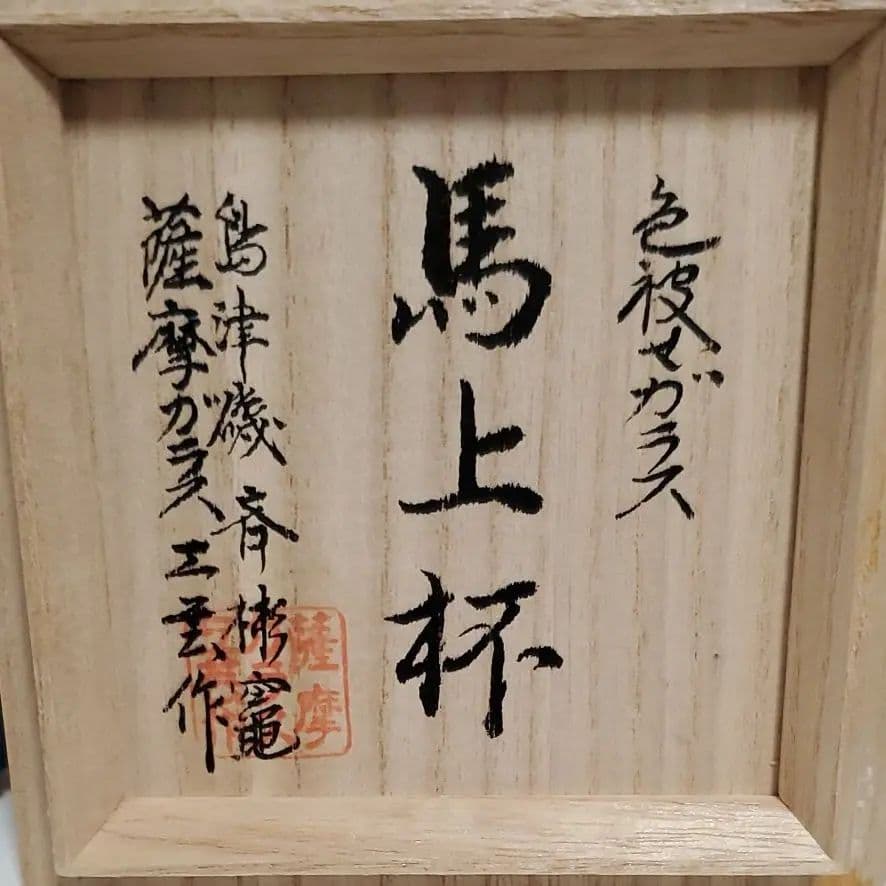 色被せガラス
馬上杯
島津磯斉彬竈
薩摩ガラス工芸作
薩摩